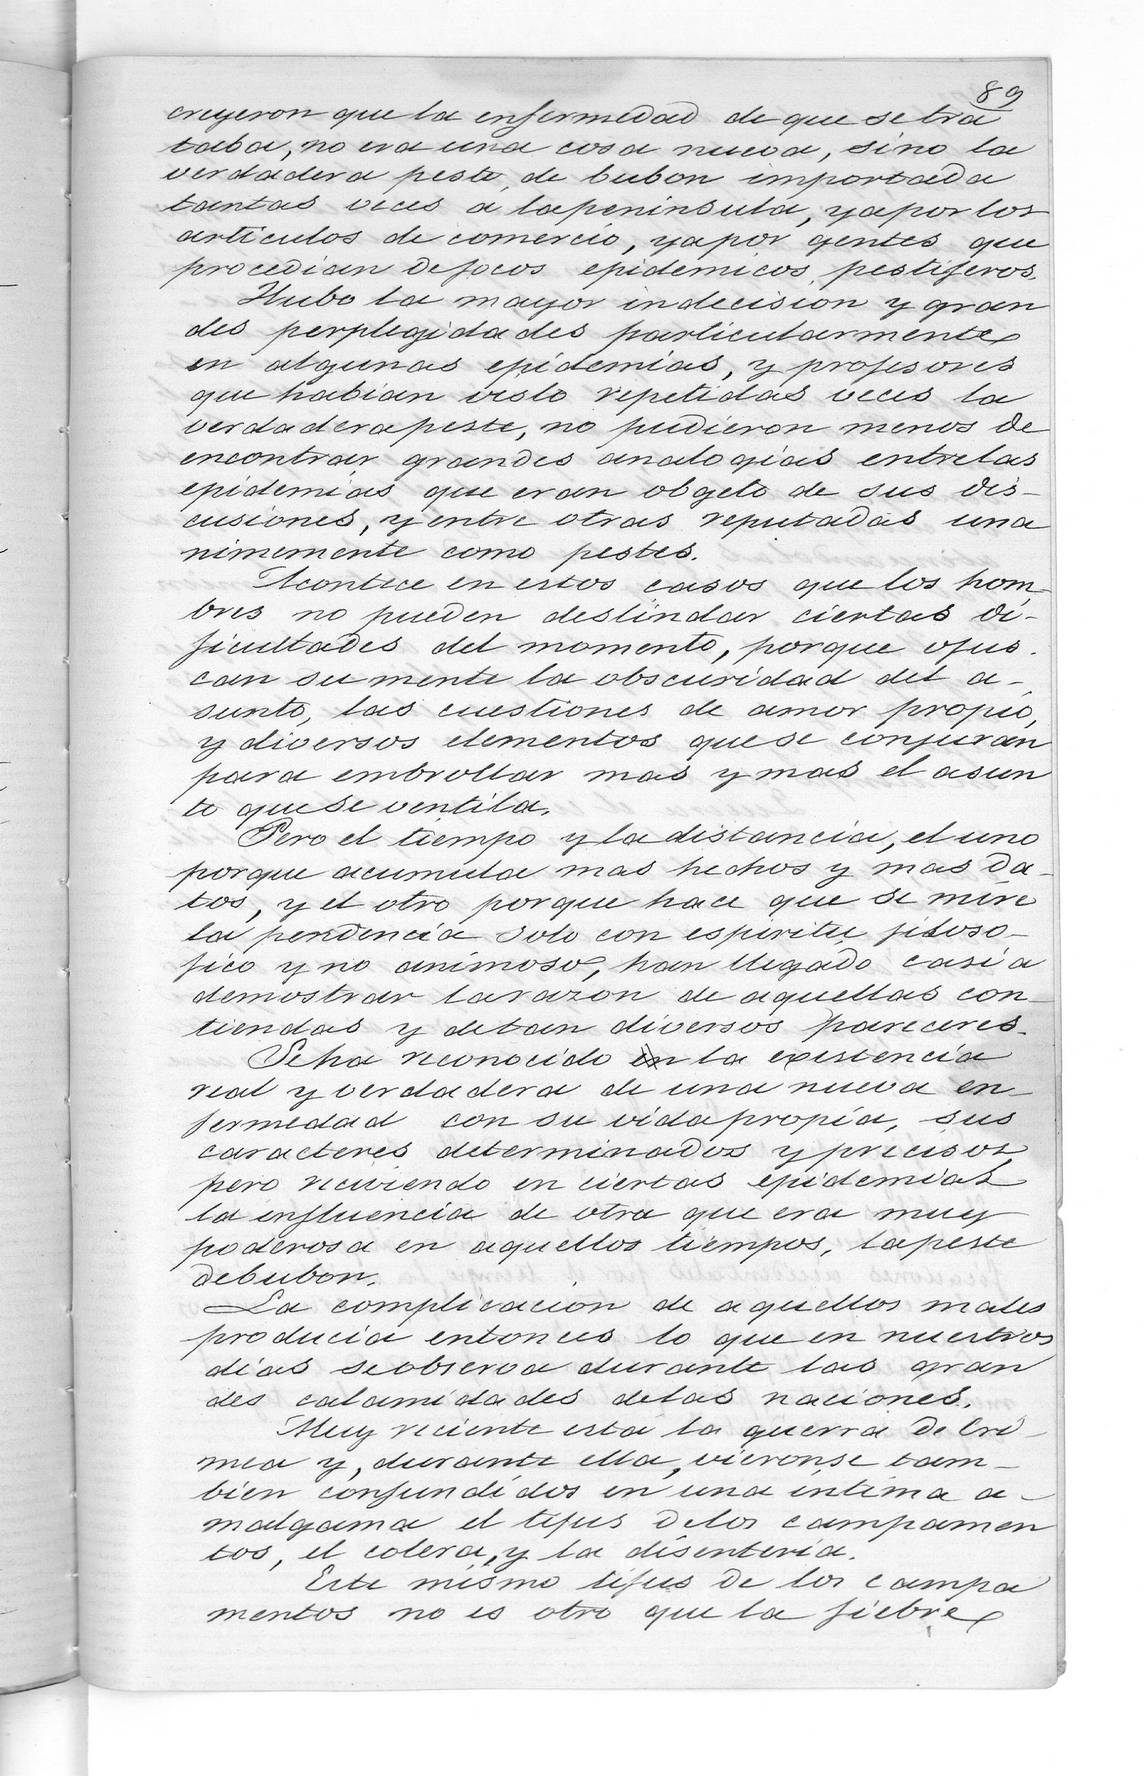 89
creyeron que la enfermedad de que se tra
taba, no era una cosa nueva, sino la
verdadera peste de bubon importada
tantas veces a la peninsula, ya por los
articulos de comercio, ya por gentes que
procedian de focos epidemicos pestiferos.
Hubo la mayor indecision y gran
des perplegidades particularmente
en algunas epidemias, y profesores
que habian visto repetidas veces la
verdadera peste, no pudieron menos de
encontrar grandes analogias entre las
epidemias que eran obgeto de sus dis-
cusiones, y entre otras reputadas una
nimemente como pestes.
Acontece en estos casos que los hom-
bres no pueden deslindar ciertas di-
ficultades del momento, porque ofus-
can su mente la obscuridad del a-
sunto, las cuestiones de amor propio,
y diversos elementos que se conjuran
para embrollar mas y mas el asun
to que se ventila.
Pero el tiempo y la distancia, el uno
porque acumula mas hechos y mas da-
tos, y el otro porque hace que se mire
la pendencia solo con espiritu filoso-
fico y no animoso, han llegado casi a
demostrar la razon de aquellas con-
tiendas y de tan diversos pareceres.
Se ha reconocido en la existencia
real y verdadera de una nueva en-
fermedad con su vida propia, sus
caracteres determinados y precisos
pero reciviendo en ciertas epidemias
la influencia de otra que era muy
poderosa en aquellos tiempos, la peste
de bubon.
La complicacion de aquellos males
producia entonces lo que en nuestros
dias se observa durante las gran
des calamidades de las naciones.
Muy reciente está la guerra de Cri-
mea y, durante ella, vieronse tam-
bien confundidos en una intima a-
malgama el tifus de los campamen
tos, el colera, y la disenteria.
Este mismo tifus de los campa
mentos no es otro que la fiebre